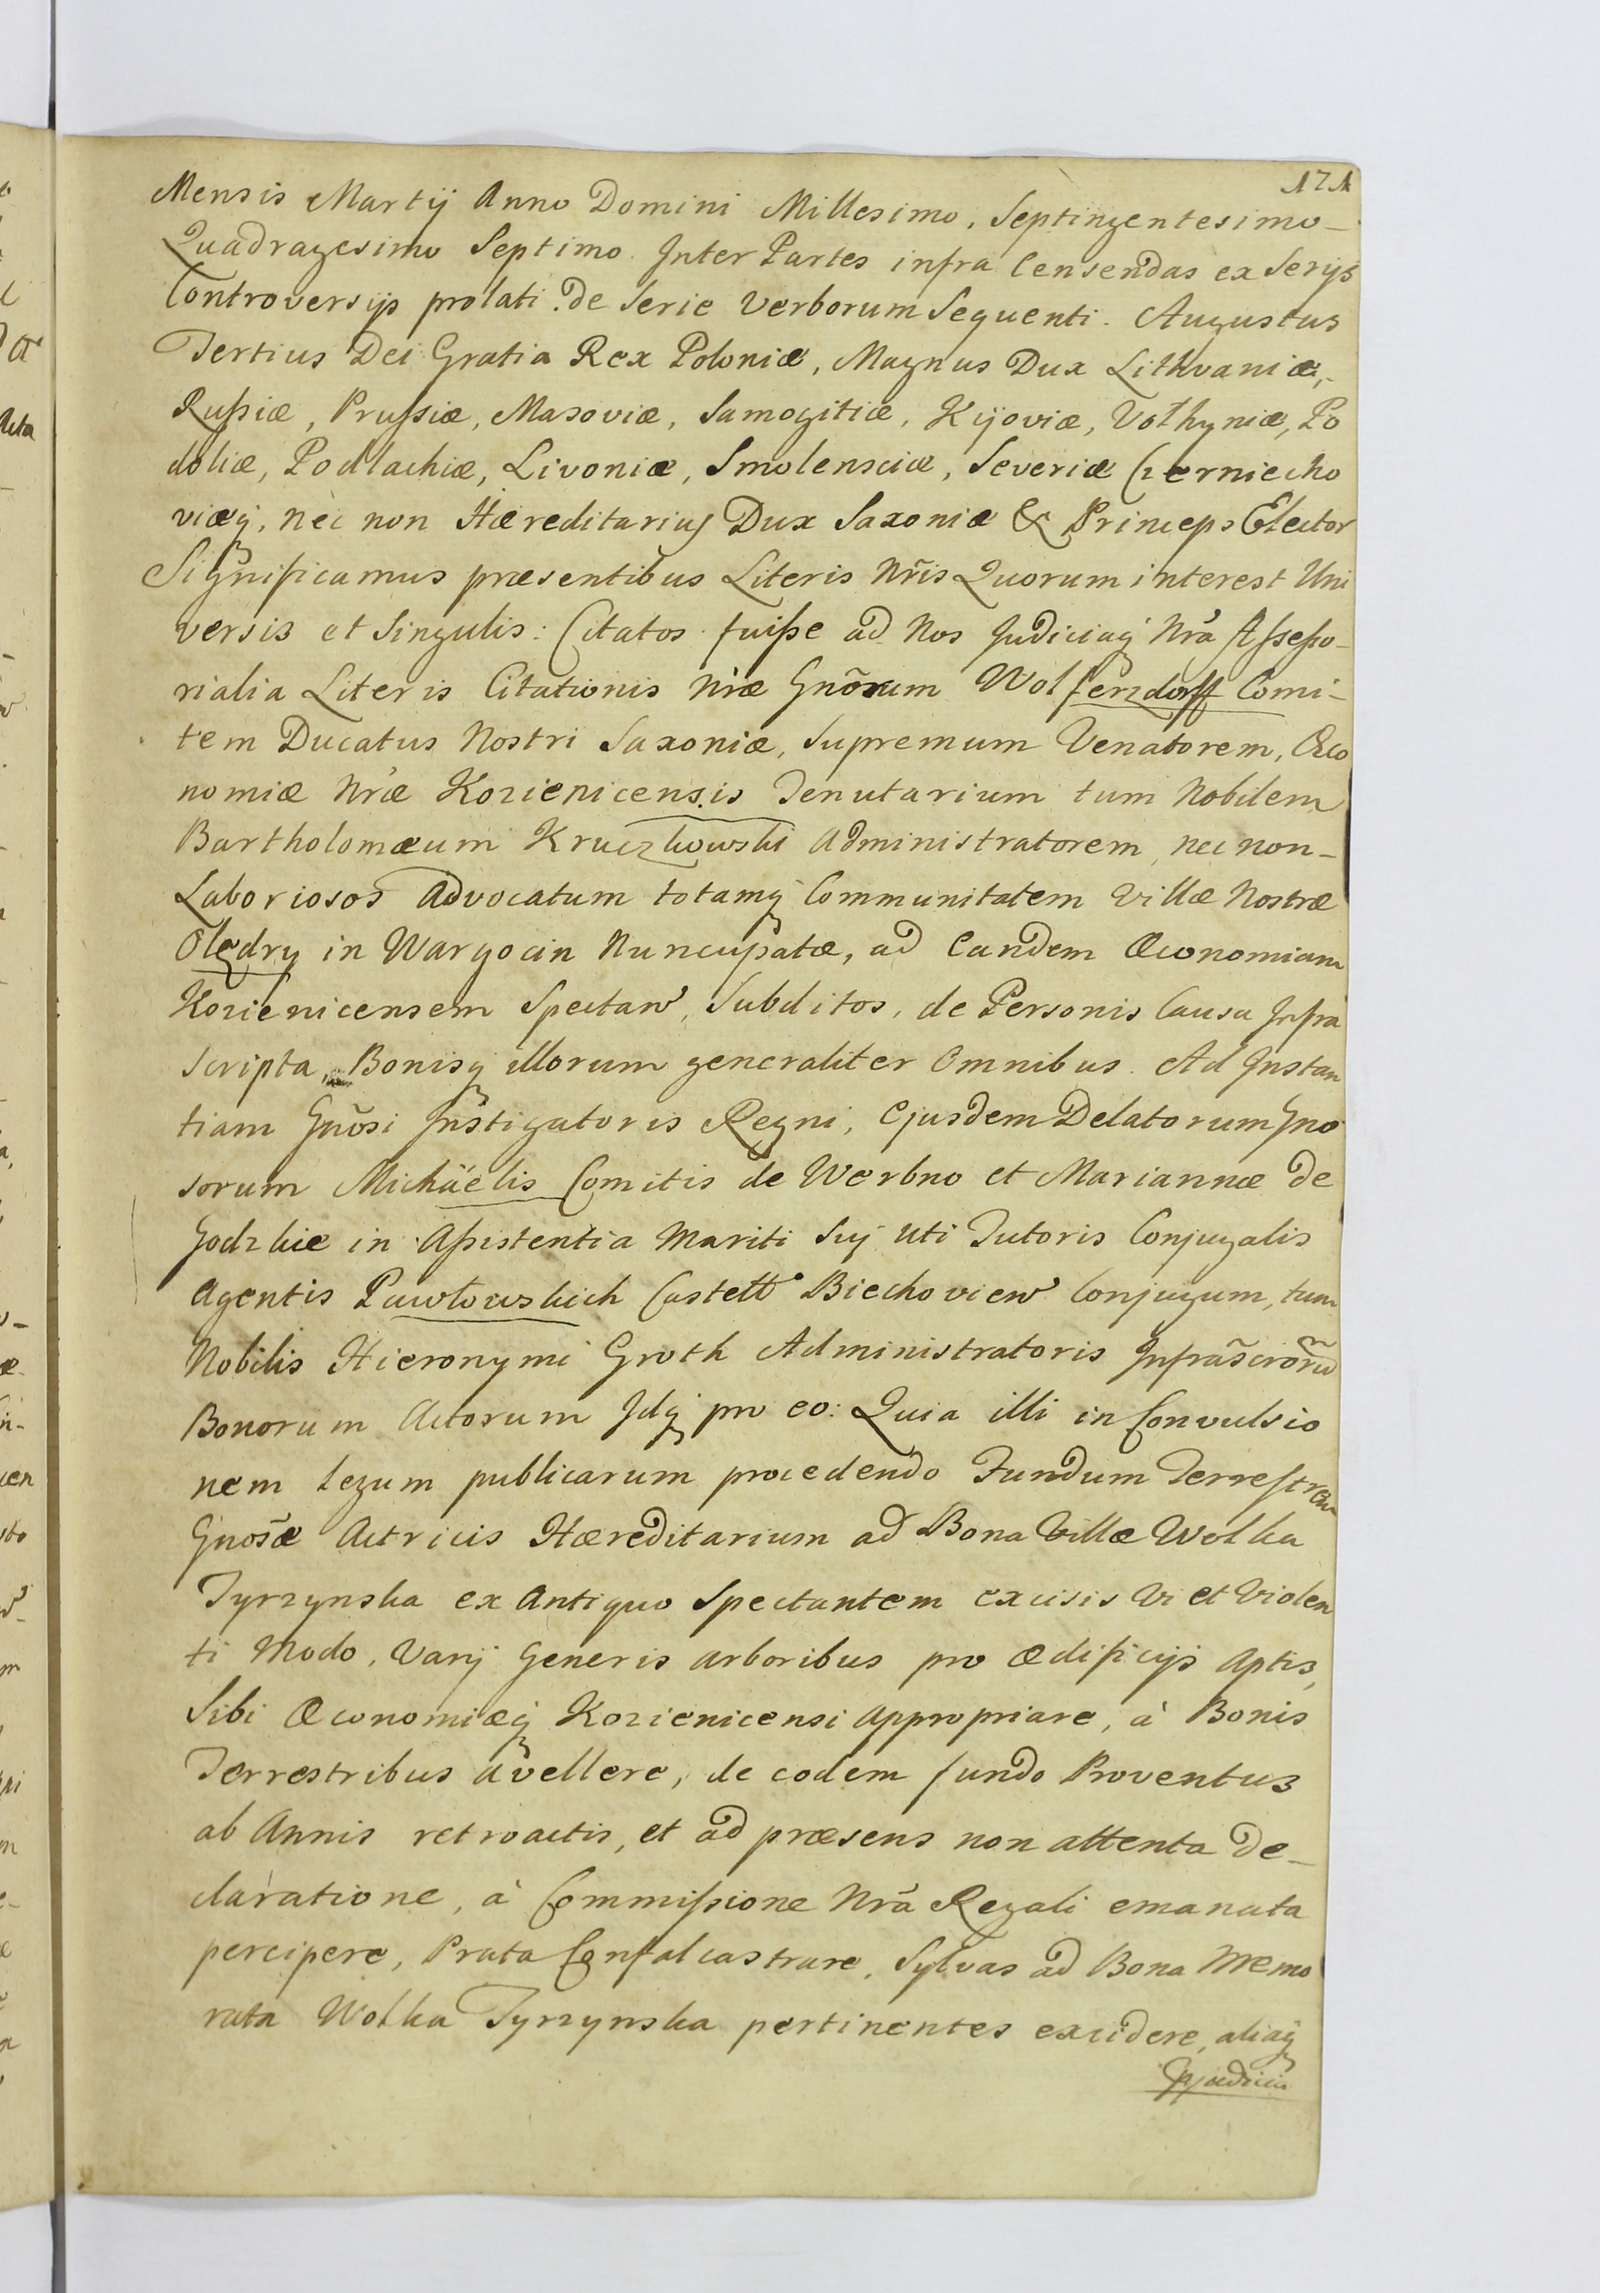 171
Mensis Martij Anno Domini Millesimo, Septingentesimo_
Quadragesimo Septimo. Inter Partes infra Censendas ex Serijs
Controversijs prolati. de Serie Verborum Sequenti. Augustus
Tertius Dei Gratia Rex Poloniæ, Magnus Dux Lithvaniæ,
Rußiæ, Prußiæ, Masoviæ, Samogitiæ, Kijoviæ, Volhyniæ, Po
doliæ, Podlachiæ, Livoniæ, Smolensciæ, Severiæ Czerniecho
viæq, nec non Hæreditarius Dux Saxoniæ & Princeps Elector
Significamus præsentibus Literis Nr̃is Quorum interest Uni
versis et Singulis: Citatos fuiße ad Nos Judiciaq Nr̃a Aßeßo_
rialia Literis Citationis Nr̃æ Gnõrum Wolferzdorff Comi_
tem Ducatus Nostri Saxoniæ, Supremum Venatorem, Œco
nomiæ Nr̃æ Kozienicensis Tenutarium tum Nobilem
Bartholomæum Kruczkowski Administratorem, nec non_
Laboriosos Advocatum totamq Communitatem Villæ Nostræ
Olędry in Wargocin Nuncupatæ, ad Eandem Œconomiam
Kozienicensem Spectan̄, Subditos, de Personis Causa Infra
scripta, Bonisq illorum generaliter Omnibus. Ad Instan
tiam Gnõsi Instigatoris Regni, Ejusdem Delatorum Gno
sorum Michäelis Comitis de Werbno et Mariannæ de
Godzkie in Aßistentia Mariti Sui uti Tutoris Conjugalis
Agentis Pawłowskich Castell Biechovien̄ Conjugum, tum
Nobilis Hieronymi Groth Administratoris Infrãscrõrũ
Bonorum Actorum Idq pro eo: Quia illi in Convulsio
nem legum publicarum procedendo Fundum Terrestrem
Gnosæ Actricis Hæreditarium ad Bona Villæ Wolka
Tyrzynska ex Antiquo Spectantem excisis Vi et Violen
ti Modo, Varij Generis arboribus pro ædificijs aptis,
Sibi Œconomiæq Kozienicensi appropriare, à Bonis
Terrestribus avellere, de eodem fundo Proventus
ab Annis retroactis, et ad præsens non attenta De_
claratione, à Commißione Nr̃a Regali emanata
percipere, Prata Confalcastrare, Sylvas ad Bona Memo
rata Wolka Tyrzynska pertinentes excidere, aliaq